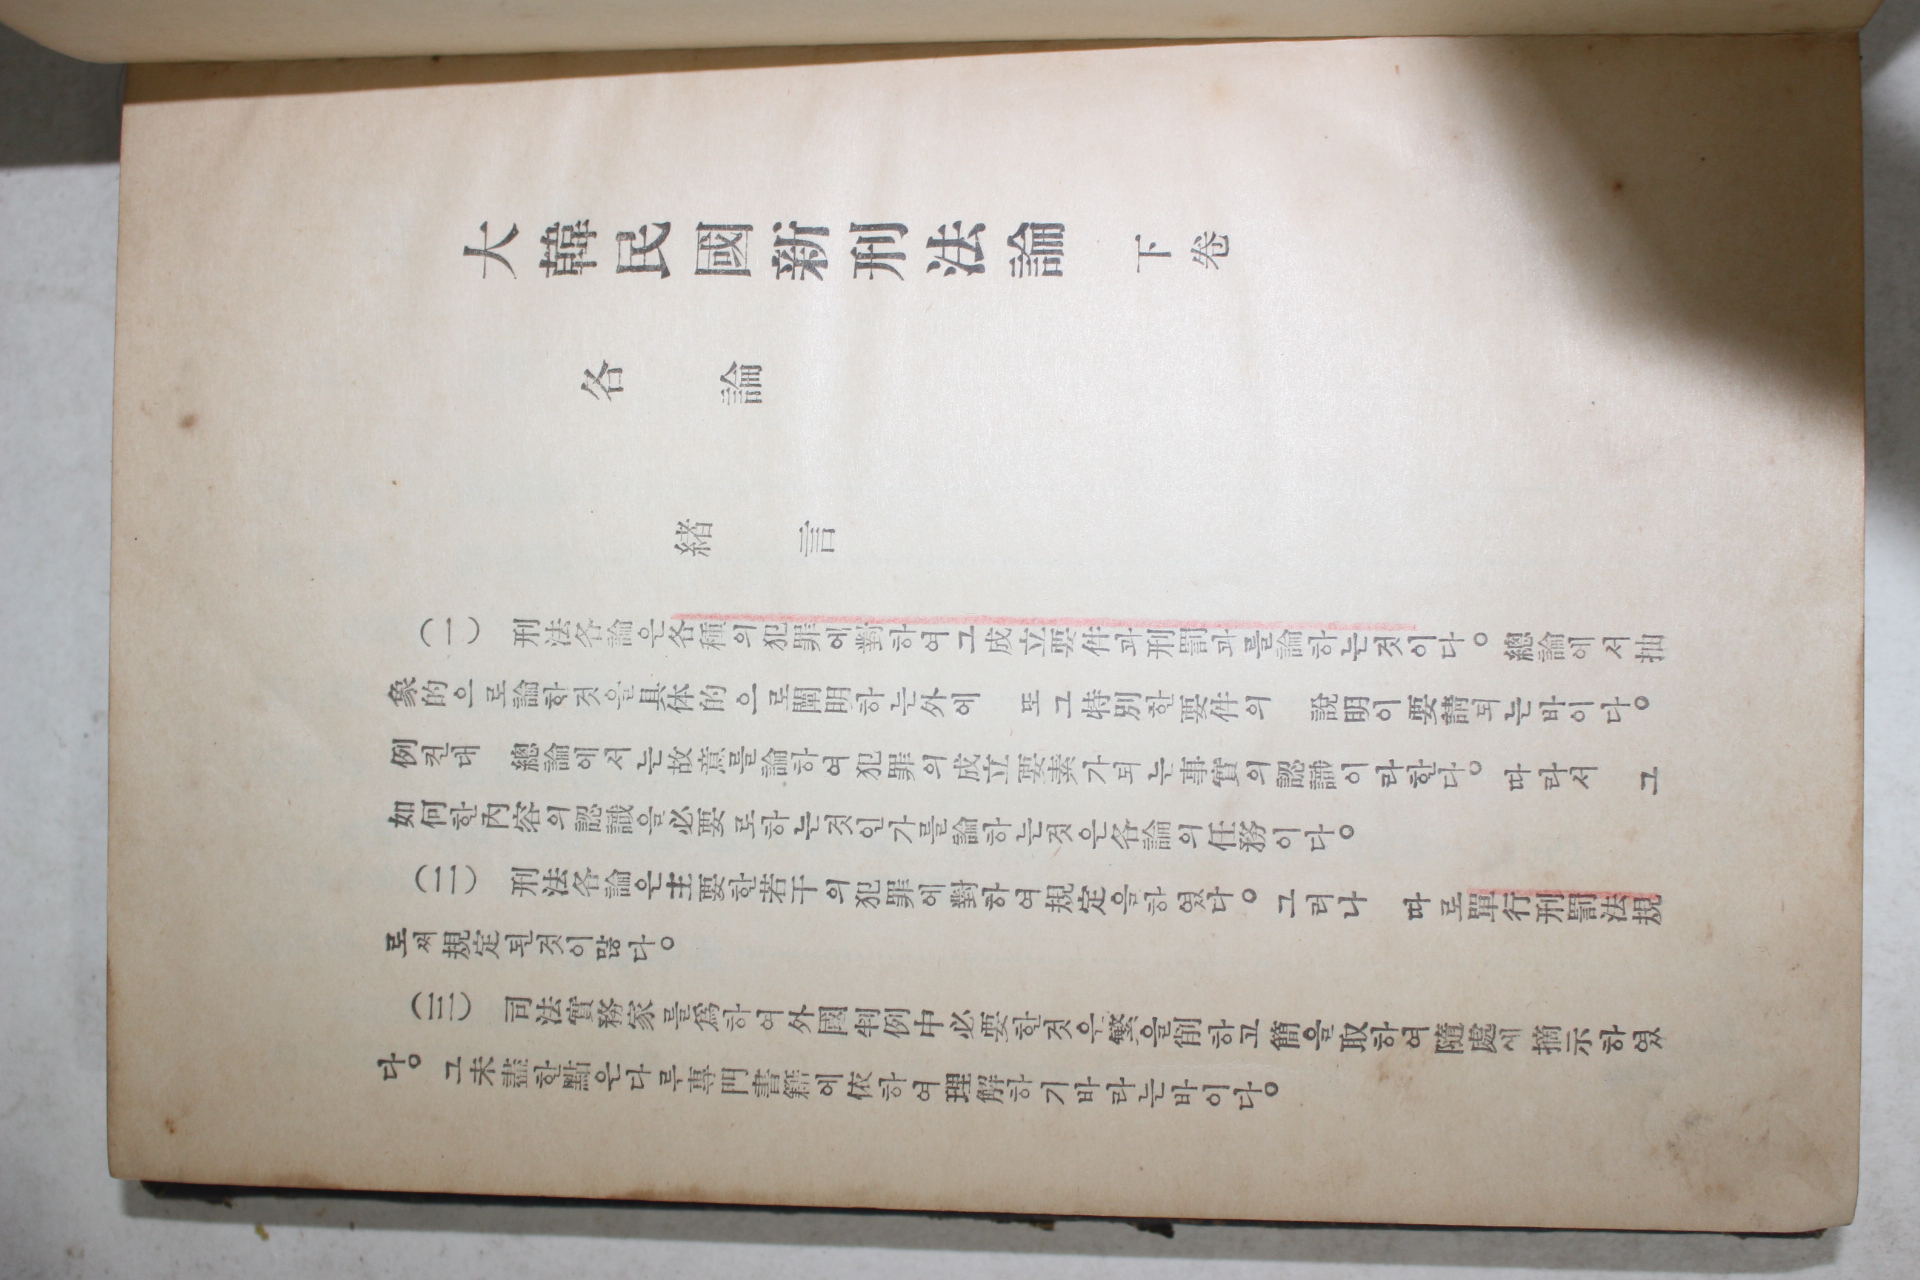 大韓民國新刑法論 下卷
各論
緖言
(一) 刑法各論은各種의犯罪에對하여그成立要件과刑罰과를論하는것이다。總論에서抽
象的으로論한것을具体的으로闡明하는外에 또그特別한要件의 說明이要請되는바이다。
例컨대 總論에서는故意를論하여犯罪의成立要素가되는事實의認識이라한다。따라서 그
如何한內容의認識을必要로하는것인가를論하는것은各論의任務이다。
(二) 刑法各論은主要한若干의犯罪에對하여規定을하였다。그러나 따로單行刑罰法規
로써規定된것이많다。
(三) 司法實務家를爲하여外國判例中必要한것은繁을削하고簡을取하여隨處에摘示하였
다。 그未盡한點은다루專門書籍에依하여理解하기바라는바이다。